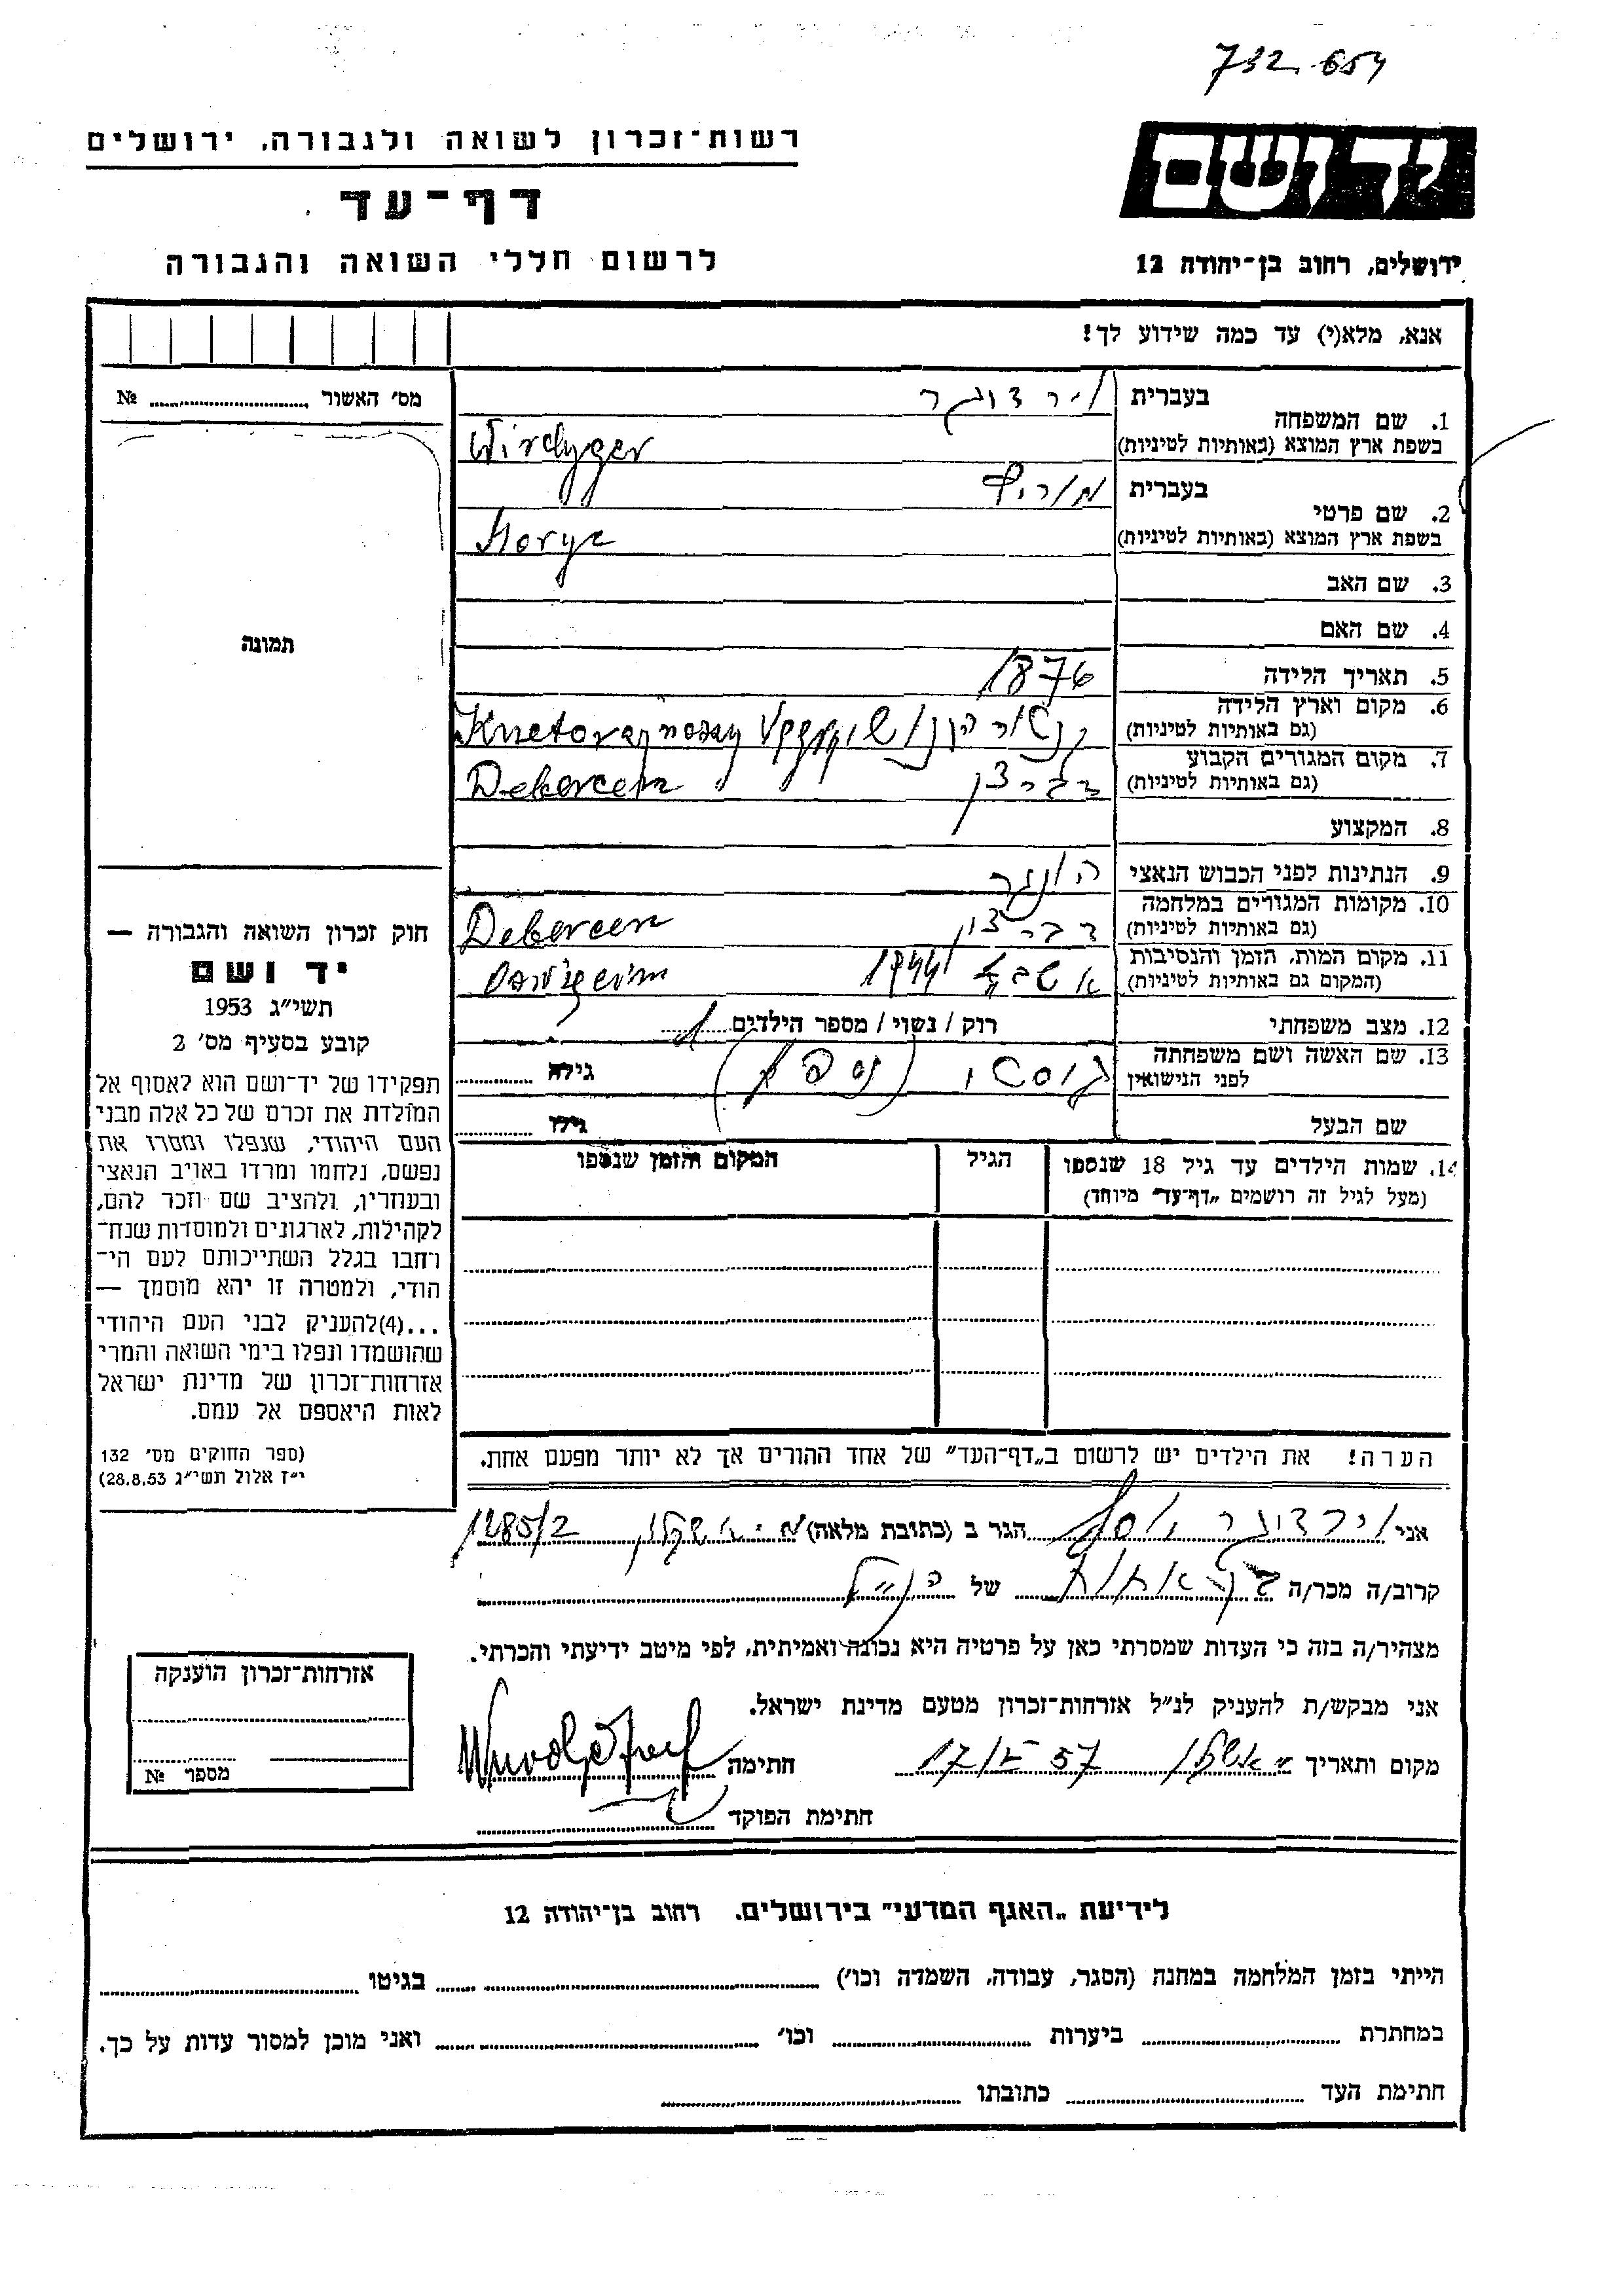 732.654
רשות־זכרון לשואה ולגבורה, ירושלים
דף־עד
לרשום חללי השואה והגבורה
יד ושם
ירושלים, רחוב בן־יהודה 12
אנא, מלא(י) עד כמה שידוע לך!
מס' האשור № 
תמונה
חוק זכרון השואה והגבורה —
יד ושם
תשי״ג 1953
קובע בסעיף מס' 2
תפקידו של יד־ושם הוא לאסוף אל
המולדת את זכרם של כל אלה מבני
העם היהודי, שנפלו ומסרו את
נפשם, נלחמו ומרדו באויב הנאצי
ובעוזריו, ולהציב שם וזכר להם,
לקהילות, לארגונים ולמוסדות שנח־
רחבו בגלל השתייכותם לעם הי־
הודי, ולמטרה זו יהא מוסמך —
...(4)להעניק לבני העם היהודי
שהושמדו ונפלו בימי השואה והמרי
אזרחות־זכרון של מדינת ישראל
לאות היאספם אל עמם.
(ספר החוקים מס' 132
י״ז אלול תשי״ג 28.8.53)
1. שם המשפחה בעברית וירדוגר
בשפת ארץ המוצא (באותיות לטיניות) Wirdyger
2. שם פרטי בעברית מוריץ
בשפת ארץ המוצא (באותיות לטיניות)
3. שם האב
4. שם האם
5. תאריך הלידה 1876
6. מקום וארץ הלידה
(גם באותיות לטיניות)
7. מקום המגורים הקבוע דברצן
(גם באותיות לטיניות) Debrecen
8. המקצוע
9. הנתינות לפני הכבוש הנאצי הונגר
10. מקומות המגורים במלחמה דברצן
(גם באותיות לטיניות) Debrecen
11. מקום המות, הזמן והנסיבות 1944
(המקום גם באותיות לטיניות)
12. מצב משפחתי רוק / נשוי / מספר הילדים 1
13. שם האשה ושם משפחתה
לפני הנישואין גילה
שם הבעל גילו
14. שמות הילדים עד גיל 18 שנספו הגיל המקום והזמן שנספו
(מעל לגיל זה רושמים „דף־עד״ מיוחד)
הערה! את הילדים יש לרשום ב„דף־העד״ של אחד ההורים אך לא יותר מפעם אחת.
אני וירדוגר יוסף הגר ב (כתובת מלאה) אשקלון 1285/2
קרוב/ה מכר/ה של הנ״ל
מצהיר/ה בזה כי העדות שמסרתי כאן על פרטיה היא נכונה ואמיתית, לפי מיטב ידיעתי והכרתי.
אני מבקש/ת להעניק לנ״ל אזרחות־זכרון מטעם מדינת ישראל.
מקום ותאריך אשקלון חתימה
חתימת הפוקד
אזרחות־זכרון הוענקה
מספר №
לידיעת „האגף המדעי״ בירושלים. רחוב בן־יהודה 12
הייתי בזמן המלחמה במחנה (הסגר, עבודה, השמדה וכו') בגיטו
במחתרת ביערות וכו' ואני מוכן למסור עדות על כך.
חתימת העד כתובתו